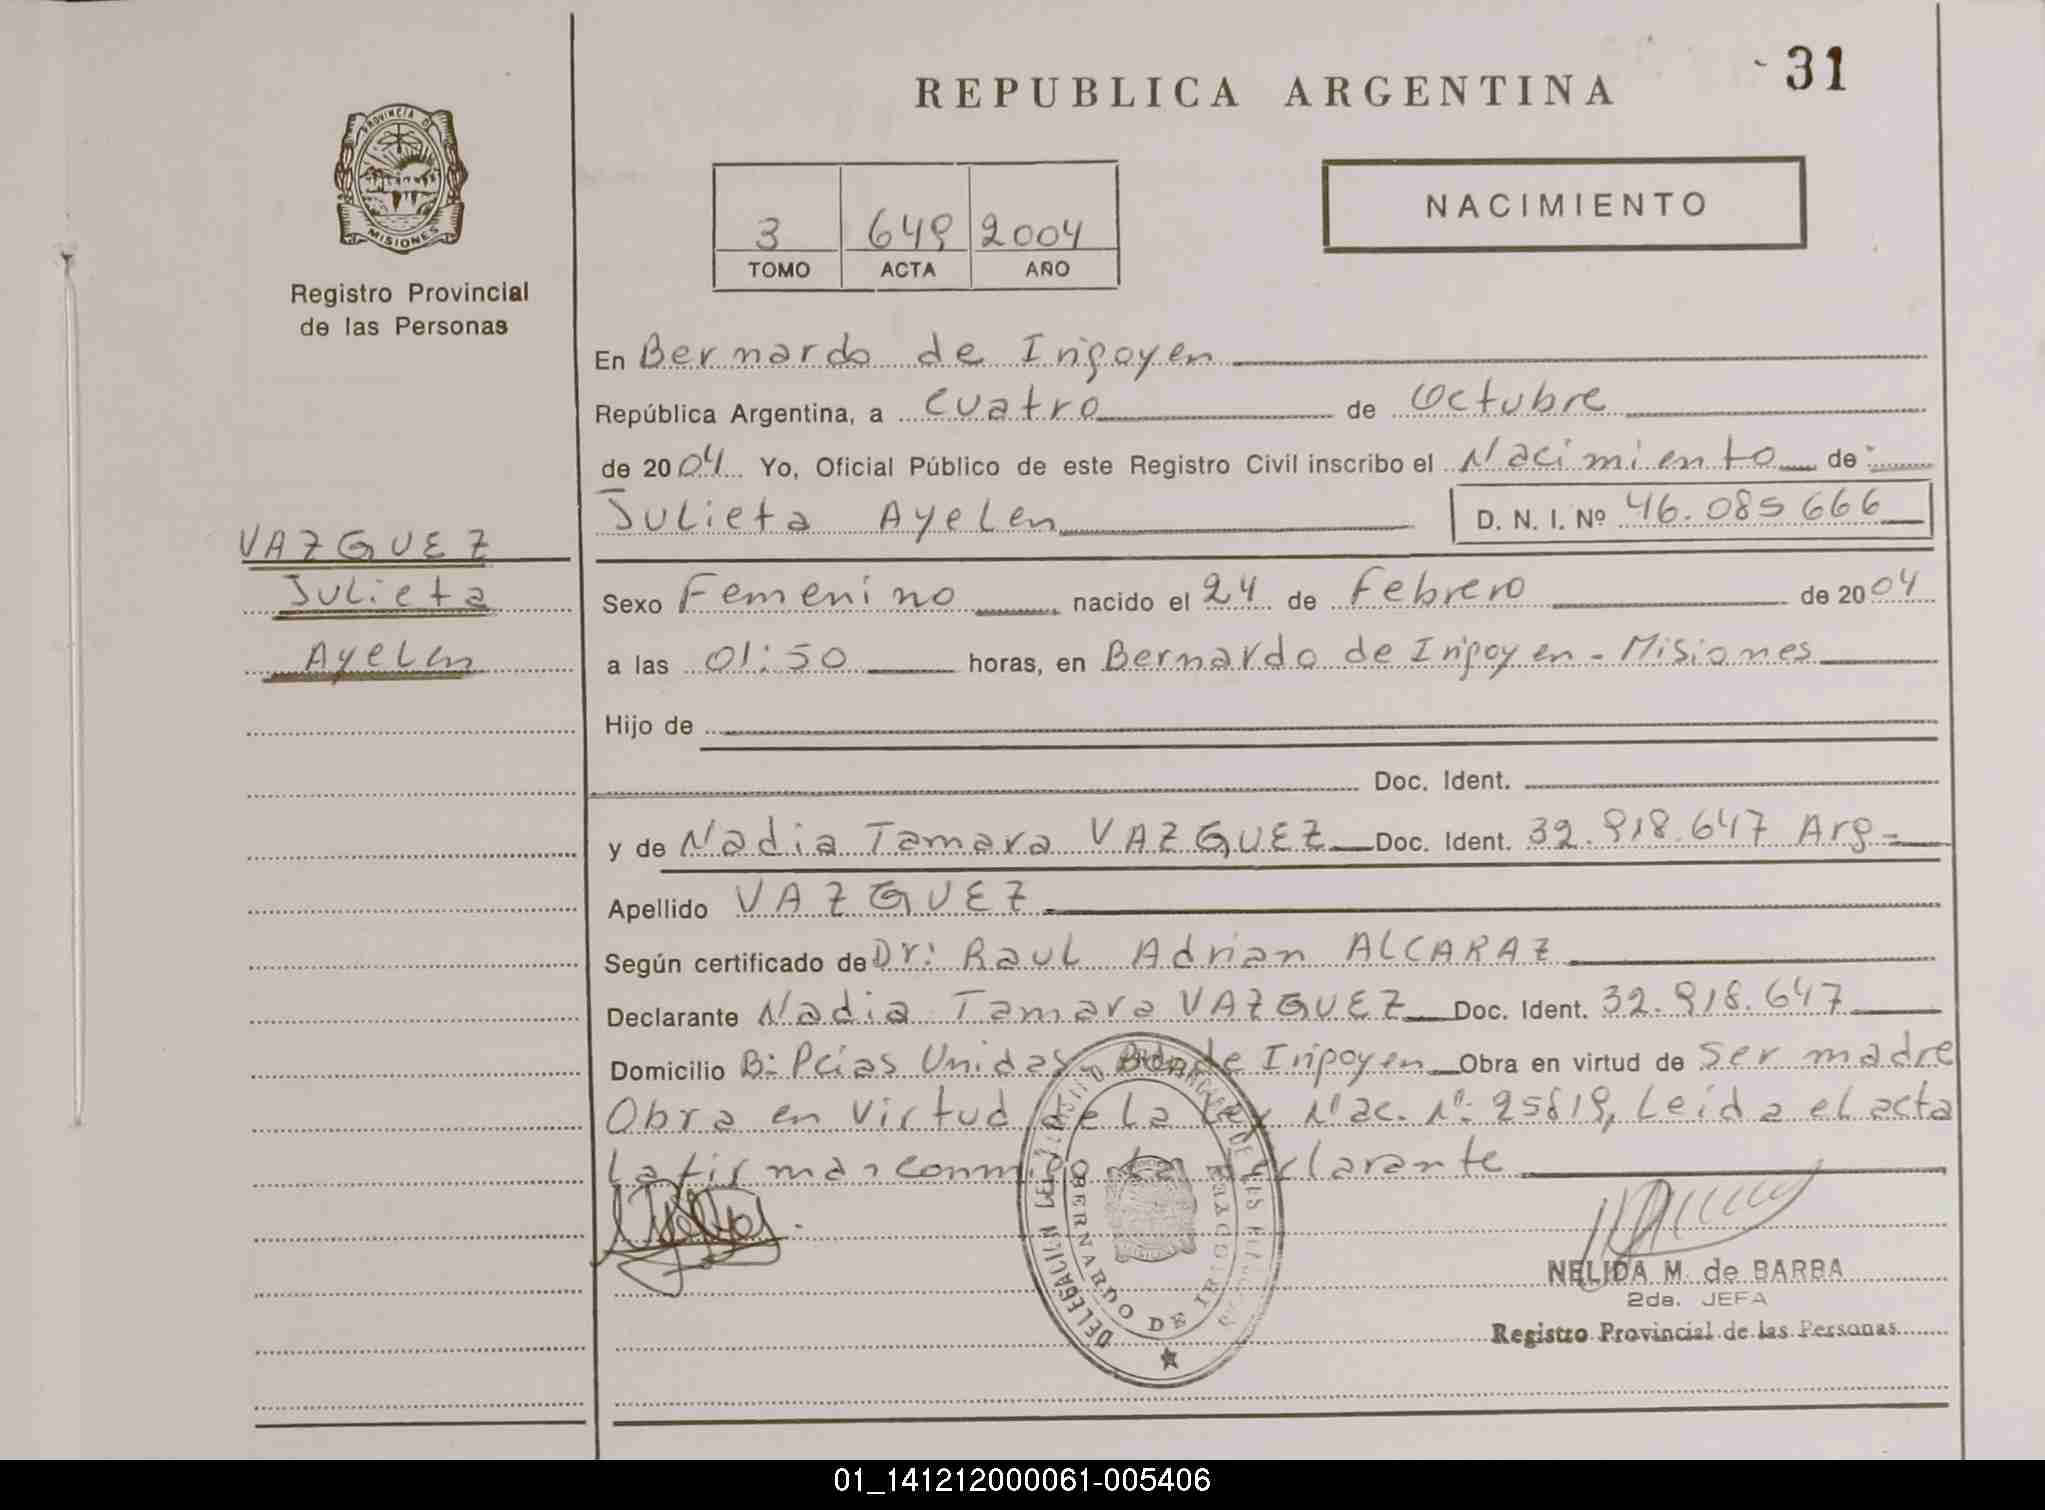 31
REPUBLICA ARGENTINA
PROVINCIA DE
MISIONES
Registro Provincial
de las Personas
NACIMIENTO
3 649 2004
TOMO ACTA AÑO
En Bernardo de Irigoyen
República Argentina, a cuatro de Octubre
de 2004 Yo, Oficial Público de este Registro Civil inscribo el Nacimiento de
Julieta Ayelen D. N. I. Nº 46.085666
VAZQUEZ
Julieta
Ayelen
Sexo Femenino nacido el 24 de Febrero de 2004
a las 01:50 horas, en Bernardo de Irigoyen - Misiones
Hijo de
Doc. Ident.
y de Nadia Tamara VAZQUEZ Doc. Ident. 32.918.647 Arg-
Apellido VAZQUEZ
Según certificado de Dr: Raul Adrian ALCARAZ
Declarante Nadia Tamara VAZQUEZ Doc. Ident. 32.918.647
Domicilio B: Pcias Unidas Bdo de Irigoyen Obra en virtud de ser madre
Obra en virtud de la Ley Nac. Nº: 25819, Leida el acta
la firman conmigo la declarante
DELEGACION DEL
BERNARDO DE IRIGOYEN
NELIDA M. de BARBA
2da. JEFA
Registro Provincial de las Personas
01_141212000061-005406